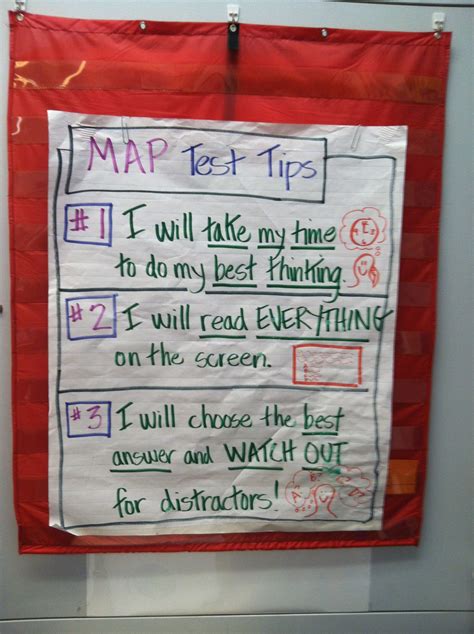 MAP Test Tips
#1 I will take my time
to do my best thinking.
#2 I will read EVERYTHING
on the screen.
#3 I will choose the best
answer and WATCH OUT
for distractors!